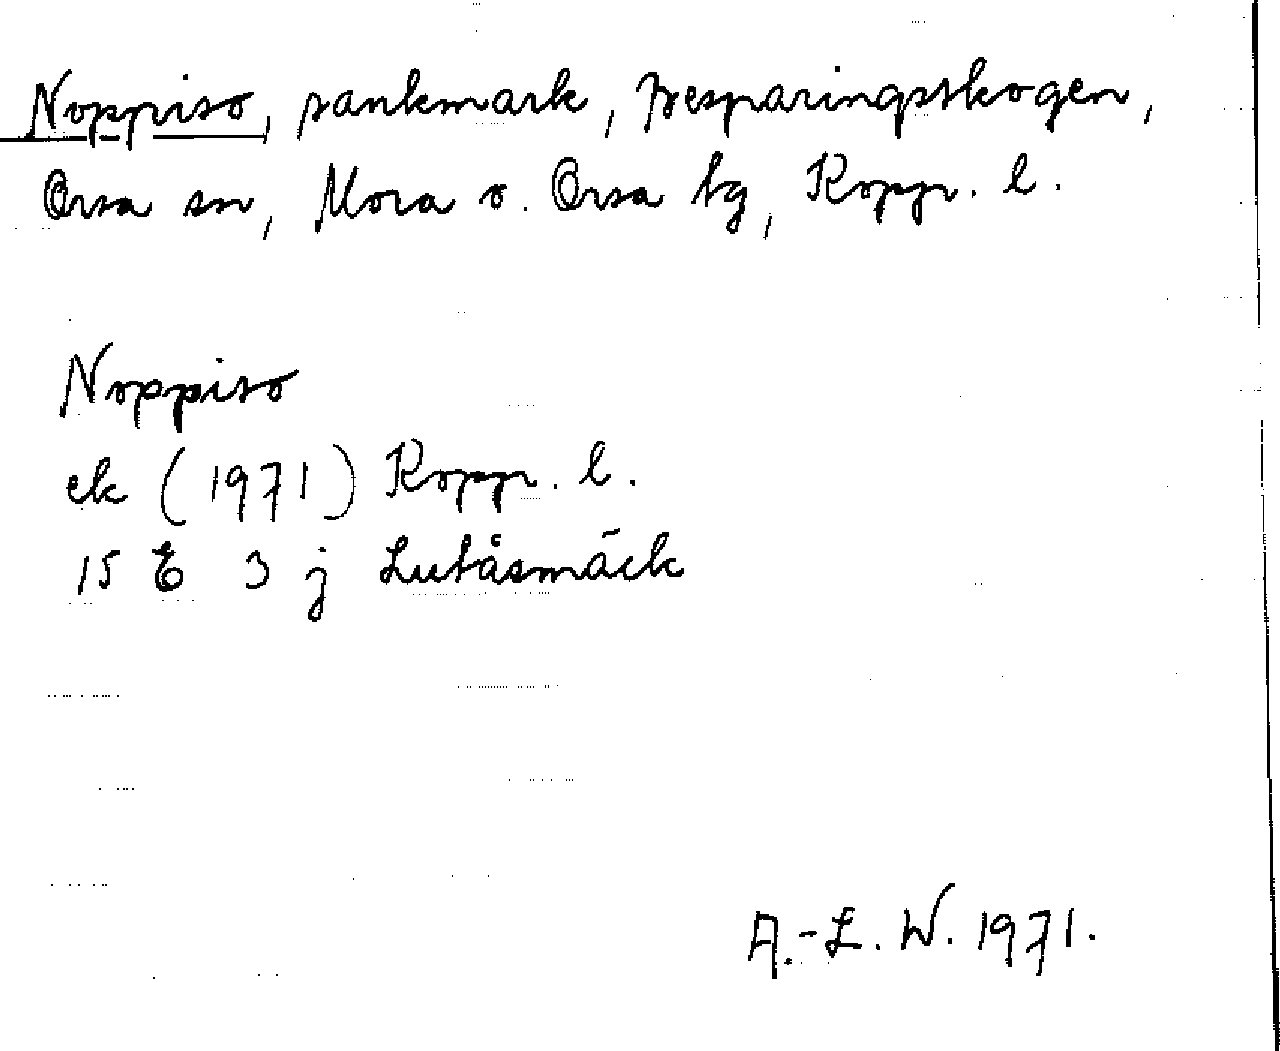 Noppiso, sankmark, Besparingsskogen,
Orsa sn, Mora o. Orsa tg, Kopp. l.
Noppiso
ek (1971) Kopp. l.
15 E 3 j Lutåsmäck
A.-L. W. 1971.